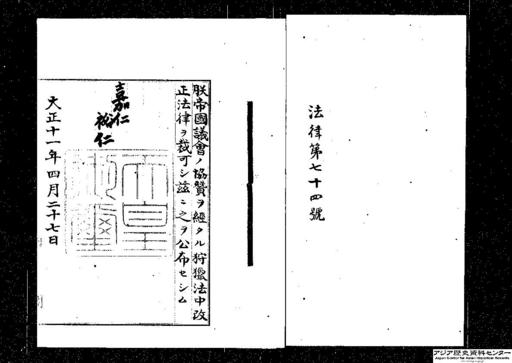 法律第七十四號
朕帝國議會ノ協贊ヲ經タル狩獵法中改
正法律ヲ裁可シ茲ニ之ヲ公布セシム
嘉仁
裕仁
大正十一年四月二十七日
アジア歴史資料センター
Japan Center for Asian Historical Records